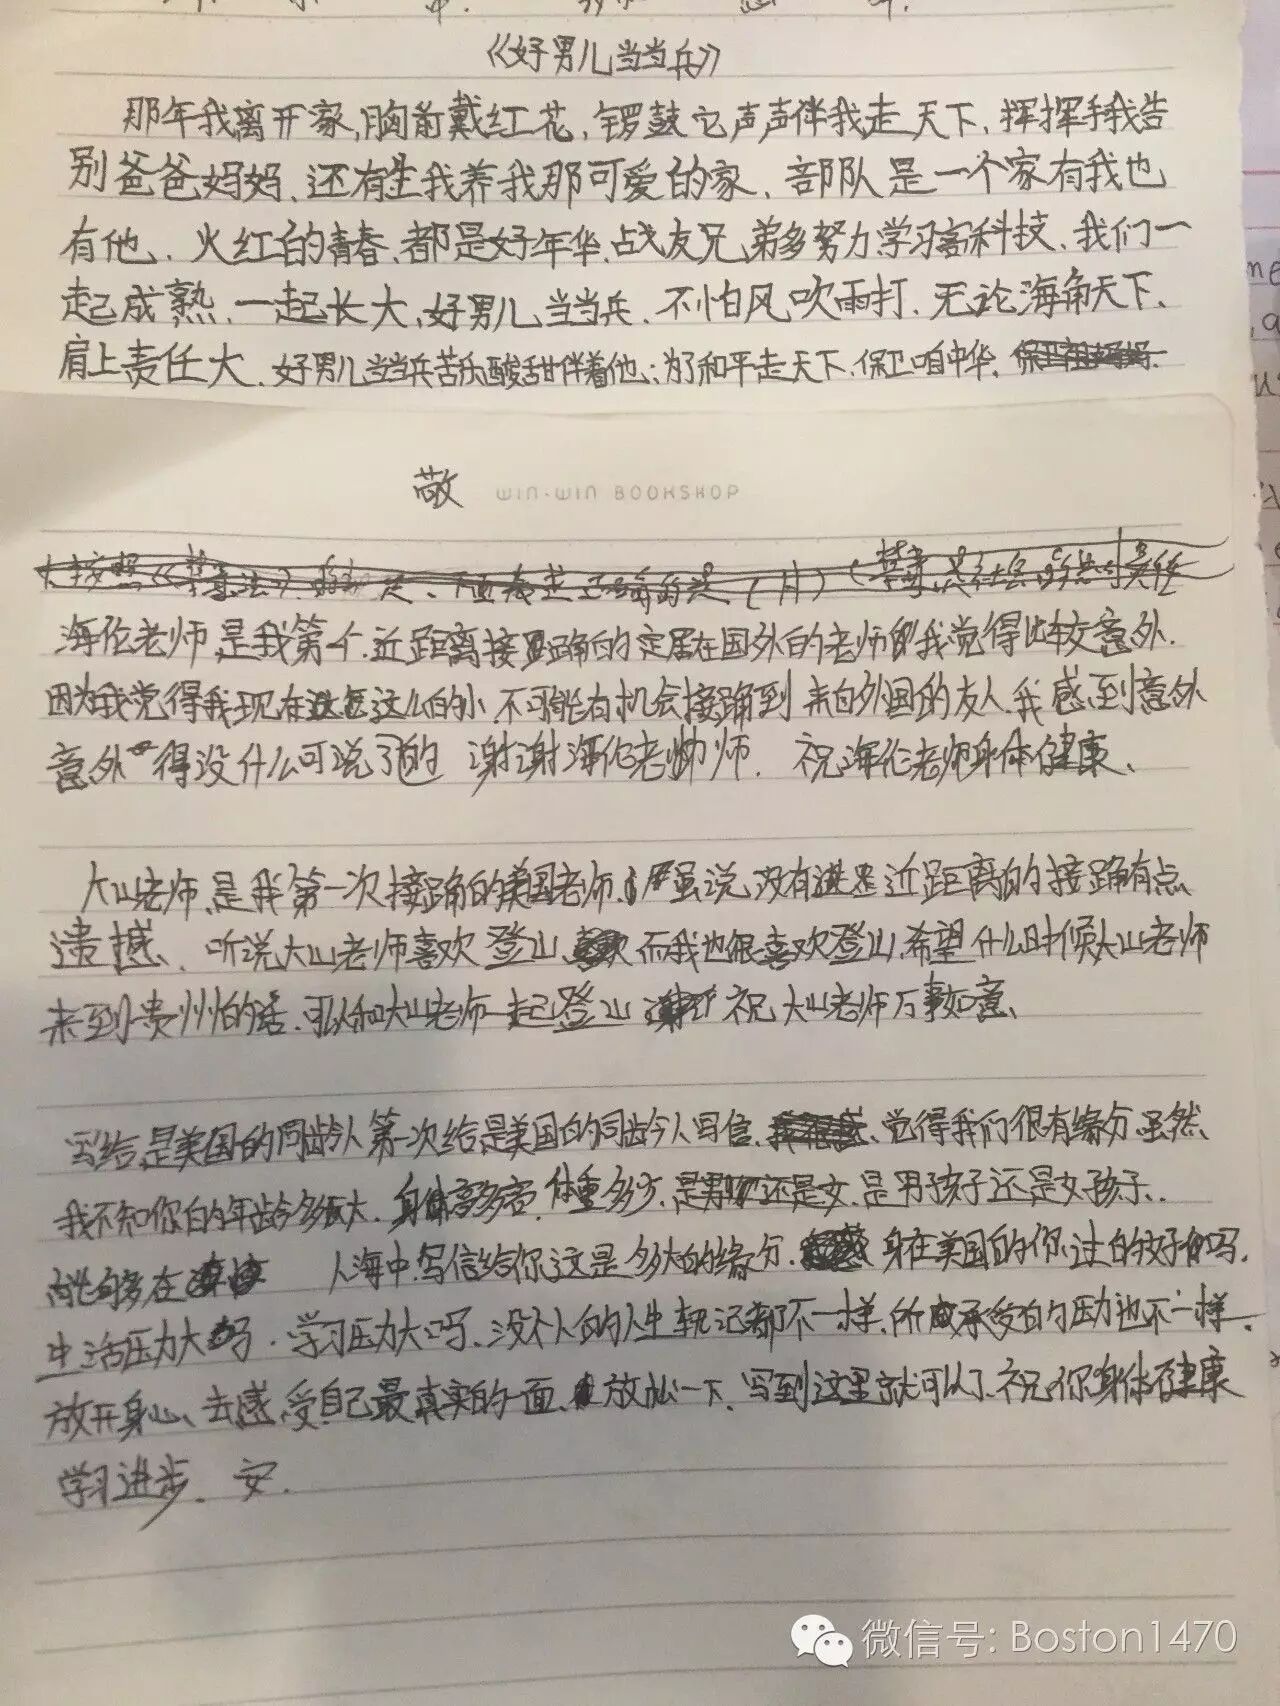 《好男儿当当兵》
那年我离开家,胸前戴红花,锣鼓它声声伴我走天下、挥挥手我告
别爸爸妈妈、还有生我养我那可爱的家、部队是一个家有我也
有他、火红的青春、都是好年华、战友兄弟多努力学习高科技、我们一
起成熟、一起长大、好男儿、当当兵、不怕风吹雨打、无论海角天下、
肩上责任大、好男儿当当兵苦乐酸甜伴着他;为了和平走天下、保卫咱中华、
敬 WIN·WIN BOOKSHOP
海伦老师、是我第一个、近距离接踊的定居在国外的老师 我觉得比较意外.
因为我觉得我现在 这么的小、不可能有机会接踊到 来自外国的友人、我感到意外
意外 得没什么可说了的 谢谢海伦老师. 祝海伦老师身体健康、
大山老师、是我第一次接踊的美国老师、虽说、没有 近距离的接踊有点
遗憾、听说大山老师喜欢登山、而我也很喜欢登山、希望什么时候大山老师
来到贵州的话、可以和大山老师一起登山 祝大山老师万事如意、
写给、是美国的同龄人 第一次给、是美国的同龄人写信、觉得我们很有缘分、虽然、
我不知你的年龄多大、身体高多 体重多少、是男 还是女、是男孩子还是女孩子、
能够在 人海中、写信给你这是多大的缘分、身在美国的你、过的好 吗、
生活压力大吗、学习压力大吗、没个人的人生轨记都不一样、所 承受的压力也不一样、
放开身心、去感、受、自己最真实的一面、放松一下、写到这里就可以了、祝你身体健康
学习进步、安.
微信号: Boston1470